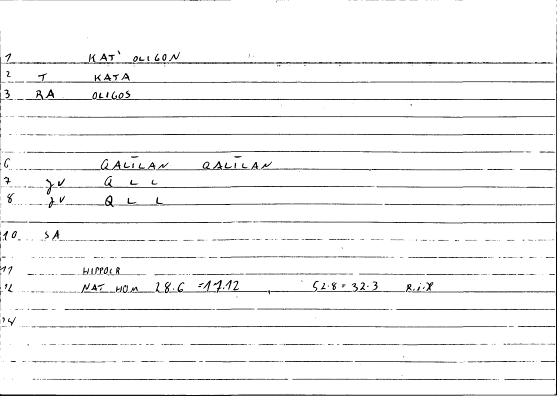 1 KAT' OLIGON
2 T KATA
3 RA OLIGOS
6 QALĪLAN QALĪLAN
7 yv Q L L
8 yv Q L L
10 SA
11 HIPPOCR
12 NAT HOM 28.6 =17.12 , 52.8 = 32.3 R.i.R
14